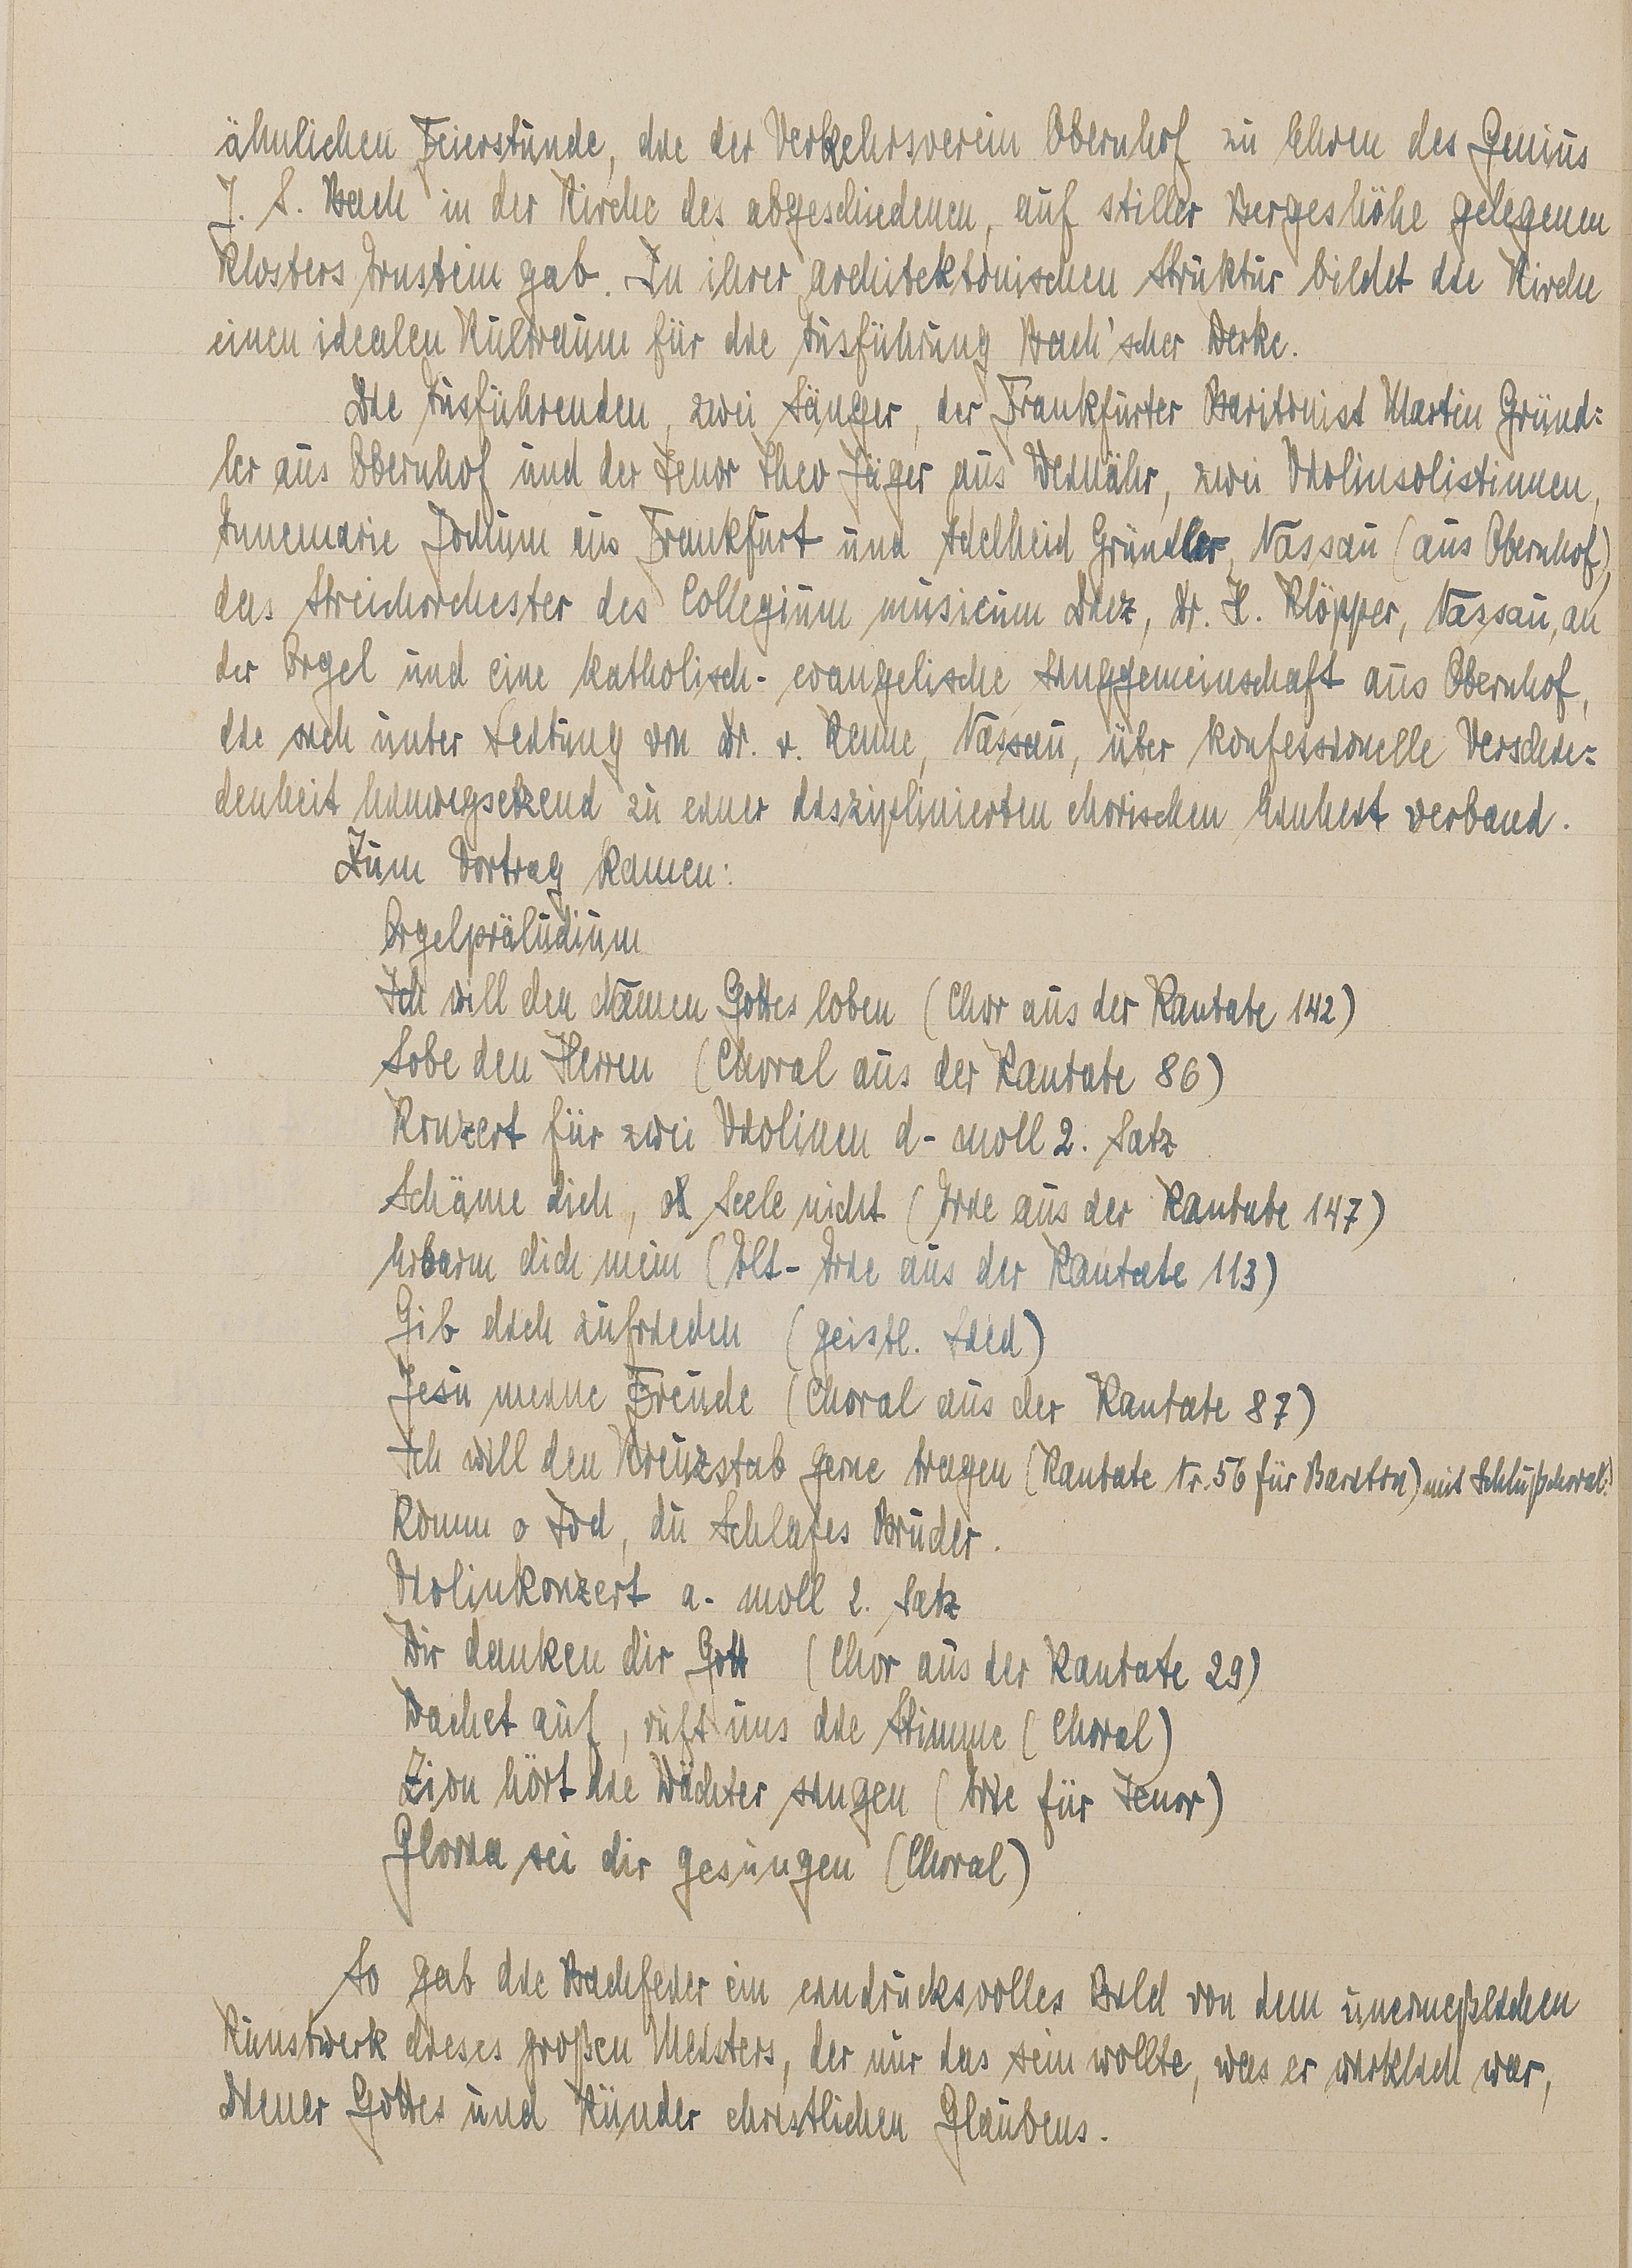 ähnlichen Feierstunde, die der Verkehrsverein Obernhof zu Ehren des Genius
J. S. Bach in der Kirche des abgeschiedenen, auf stiller Bergeshöhe gelegenen
Klosters Arnstein gab. In ihrer architektonischen Struktur bildet die Kirche
einen idealen Kultraum für die Ausführung Bach'scher Werke.
Die Ausführenden, zwei Sänger, der Frankfurter Baritonist Martin Gründ=
ler aus Obernhof und der Tenor Theo Jäger aus Weinähr, zwei Violinsolistinnen,
Annemarie Jochum aus Frankfurt und Adelheid Gründler, Nassau (aus Obernhof),
das Streichorchester des Collegium musicum Diez, Dr. H. Klöpper, Nassau, an
der Orgel und eine katholisch-evangelische Singgemeinschaft aus Obernhof,
die sich unter Leitung von Dr. v. Renne, Nassau, über konfessionelle Verschie=
denheit hinwegsetzend zu einer disziplinierten chorischen Einheit verband.
Zum Vortrag kamen:
Orgelpräludium
Ich will den Namen Gottes loben (Chor aus der Kantate 142)
Lobe den Herren (Choral aus der Kantate 86)
Konzert für zwei Violinen d-moll 2. Satz
Schäme dich, o Seele nicht (Arie aus der Kantate 147)
Erbarm dich mein (Alt-Arie aus der Kantate 113)
Gib dich zufrieden (geistl. Lied)
Jesu meine Freude (Choral aus der Kantate 87)
Ich will den Kreuzstab gerne tragen (Kantate Nr. 56 für Bariton) mit Schlußchoral:
Komm o Tod, du Schlafes Bruder.
Violinkonzert a-moll 2. Satz
Wir danken dir Gott (Chor aus der Kantate 29)
Wachet auf, ruft uns die Stimme (Choral)
Zion hört die Wächter singen (Arie für Tenor)
Gloria sei dir gesungen (Choral)
So gab die Bachfeier ein eindrucksvolles Bild von dem unermeßlichen
Kunstwerk dieses großen Meisters, der nur das sein wollte, was er wirklich war,
Diener Gottes und Künder christlichen Glaubens.